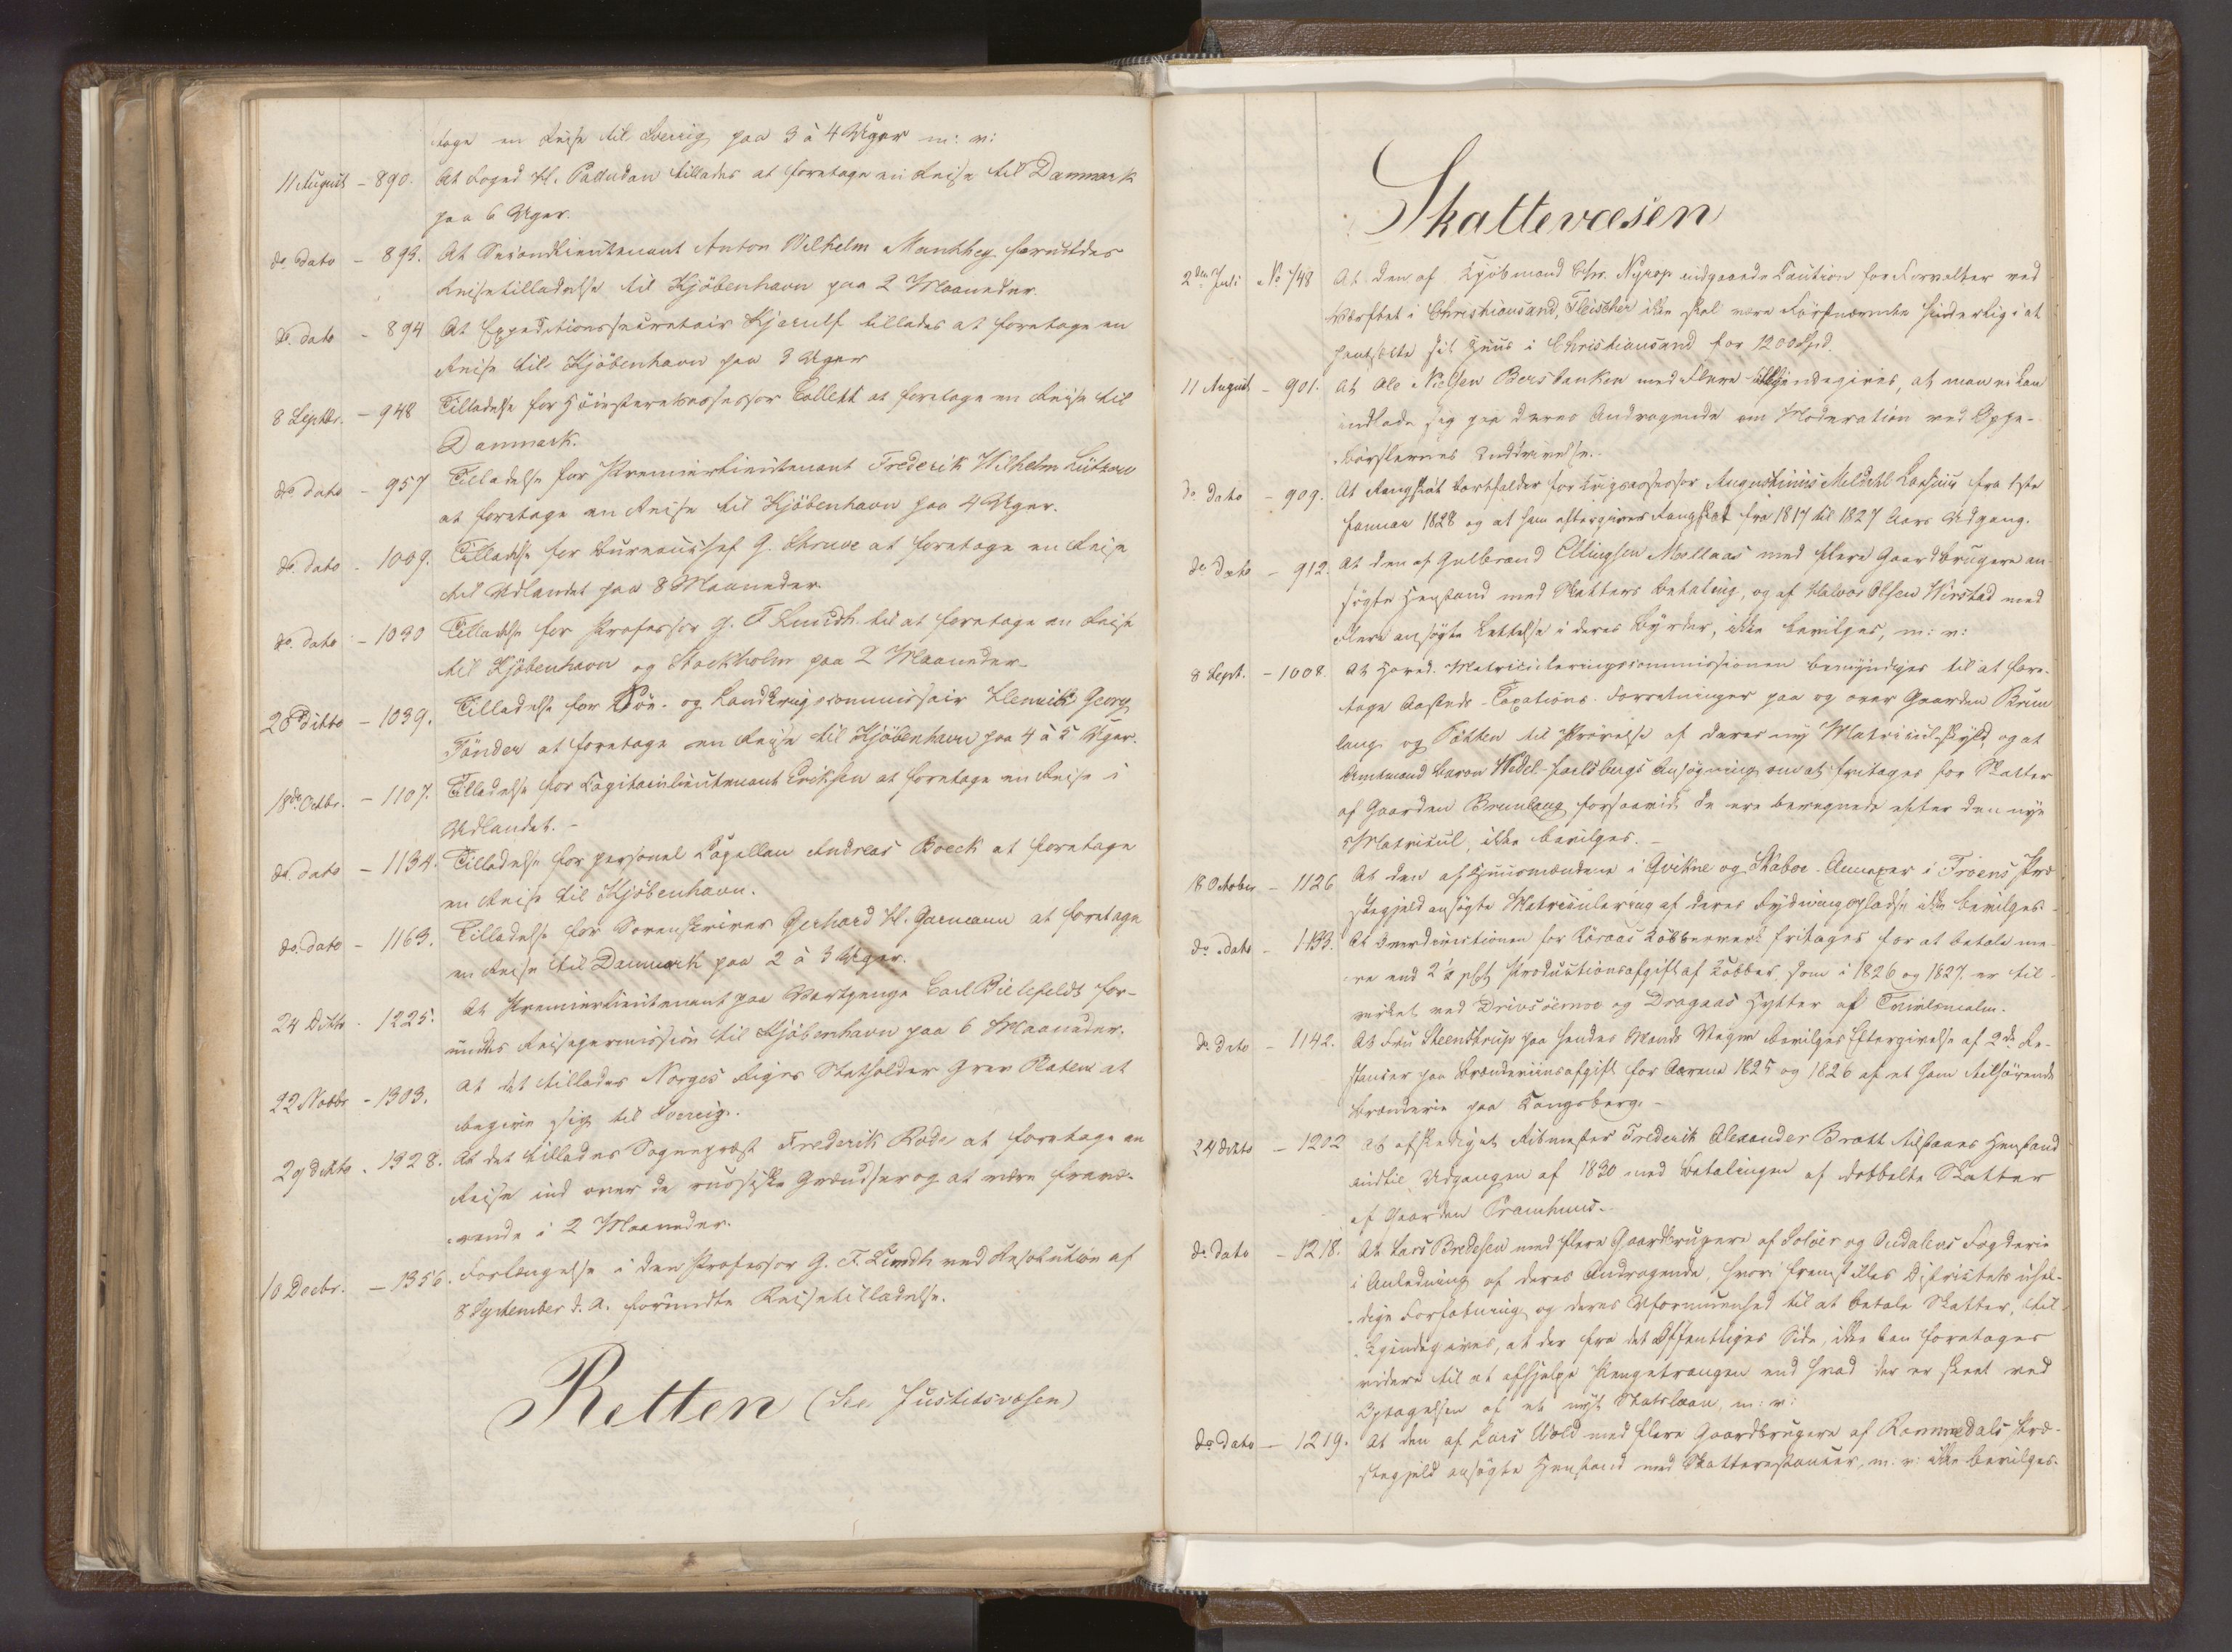 tage en Reise til Sverrig paa 3 à 4 Uger m: v:
11 August - 890. At Foged H. Palludan tillades at foretage en Reise til Danmark
paa 6 Uger.
do dato - 893. At Secondlieutenant Anton Wilhelm Munthey forundes
Reisetilladelse til Kjöbenhavn paa 2 Maaneder.
do. dato - 894 At Expeditionssecretair Kjerulf tillades at foretage en
Reise til Kjöbenhavn paa 3 Uger
8 Septbr. - 948 Tilladelse for Höiesteretsassessor Collett at foretage en Reise til
Danmark.
do dato - 957 Tilladelse for Premierlieutenant Frederik Wilhelm Lützow
at foretage en Reise til Kjöbenhavn paa 4 Uger.
do. dato - 1009. Tilladelse for Bureauchef G. Struve at foretage en Reise
til Udlandet paa 8 Maaneder.
do. dato - 1030 Tilladelse for Professor G. F. Lundh til at foretage en Reise
til Kjöbenhavn og Stockholm paa 2 Maaneder
28 ditto - 1039. Tilladelse for Söe- og Landkrigscommissair Henrik Georg
Tönder at foretage en Reise til Kjöbenhavn paa 4 à 5 Uger.
18de Octbr. - 1107. Tilladelse for Capitainlieutenant Eriksen at foretage en Reise i
Udlandet. -
do. dato - 1134. Tilladelse for personel Capellan Andreas Boeck at foretage
en Reise til Kjöbenhavn.
do. dato - 1163. Tilladelse for Sorenskriver Gerhard H. Garmann at foretage
en Reise til Danmark paa 2 à 3 Uger.
24 Ditto - 1225. At Premierlieutenant paa Vartpenge Carl Bielefeldt for-
undes Reisepermission til Kjöbenhavn paa 6 Maaneder.
22 Novbr - 1303. At det tillades Norges Riges Statholder Grev Platen at
begive sig til Sverrig.
29 ditto - 1328. At det tillades Sogneprest Frederik Rode at foretage en
Reise ind over de russiske Grændser og at være fravæ-
rende i 2 Maaneder.
10 Decbr. - 1356. Forlængelse i den Professor G. F. Lundh ved Resolution af
8 September d. A. forundte Reisetilladelse.
Retten (see Justitsvæsen)
Skattevæsen
2den Juli No 748 At den af Kjöbmand Chr. Nyrop indgaaede Caution for Forvalter ved
Værftet i Christiansand, Fleischer ikke skal være Förstnævnte hinderlig i at
pantsætte sit Huus i Christiansand for 1200 Spd.
11 August - 901. At Ole Nielsen Bersbanken med Flere tilkjendegives, at man ei kan
indlade sig paa deres Andragende om Moderation ved Oppe-
börslernes Inddrivelse.
do dato - 909. At Rangskat bortfalder for Krigsassessor Augustinus Meldahl fra 1ste
Januar 1828 og at ham eftergives Rangskat fra 1817 til 1827 Aars Udgang.
do dato - 912. At den af Gulbrand Ellingsen Mællaas med flere Gaardbrugere an-
sögte Henstand med Skatters Betaling, og af Halvor Olsen Wirstad med
Flere ansögte Lettelse i deres Byrder, ikke bevilges, m: v:
8 Sept. - 1008. At Hoved-Matriculeringscommissionen bemyndiges til at fore-
tage Aasteds-Taxations-Forretninger paa og over Gaarden Brun
lang og Tötten til Prövelse af deres ny Matriculskyld, og at
Amtmand Baron Wedel-Jarlsbergs Ansögning om at fritages for Skatter
af Gaarden Brunlaug forsaavidt de ere beregnede efter den nye
Matricul, ikke bevilges. -
18 October - 1126 At den af Huusmændene i Qvikne og Skaboe Annexer i Froens Præ
stegjeld ansögte Matriculering af deres Rydningspladse ikke bevilges. -
do. dato - 1133. At Overdirectionen for Röraas Kobberværk fritages for at betale me-
re end 2½ pCt. Productionsafgift af Kobber, som i 1826 og 1827 er til-
virket ved Drivsöernæ og Dragaas Hytter af .
do dato - 1142. At Fru Steenstrup paa hendes Mands Vegne bevilges Eftergivelse af 2de Re-
stancer paa Brænderiesafgift for Aarene 1825 og 1826 af et ham tilhörende
Brænderie paa Kongsberg. -
24 ditto - 1202 At afskediget Ritmester Frederik Alexander Bratt tilstaaes Henstand
indtil Udgangen af 1830 med Betalingen af dobbelte Skatter
af Gaarden Pramhuus.
do. dato - 1218. At Lars Bredesen med flere Gaardbrugere af Solöer og Oudalens Fogderie
i Anledning af deres Andragende, hvori fremstilles Districtets uhel-
dige Forfatning og deres Uformuenhed til at betale Skatter, til-
kjendegives, at der fra det Offentliges Side ikke kan foretages
videre til at afhjælpe Pengetrangen end hvad der er skeet ved
Optagelsen af et nyt Statslaan, m: v:
do dato - 1219. At den af Lars Wold med flere Gaardbrugere af Rommedals Præ-
stegjeld ansögte Henstand med Skatterestancer, m: v: ikke bevilges.